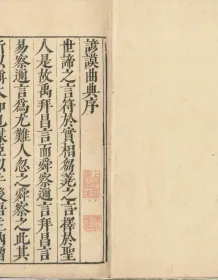 諺謨曲典序
世諦之言符於實相芻蕘之言擇於聖
人是故禹拜昌言而舜察邇言拜昌言
易察邇言為尤難人忽之舜察之此其
所以